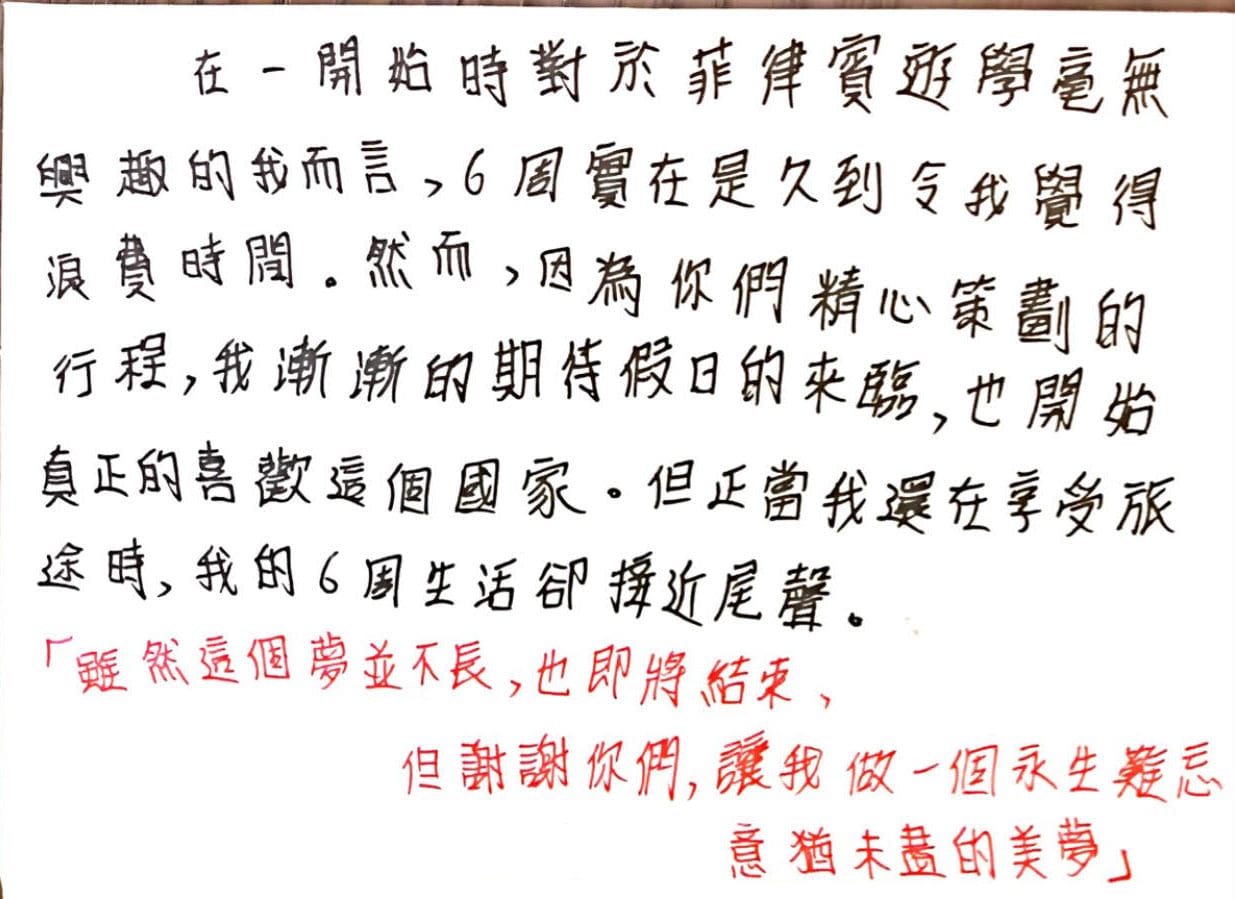 在一開始時對於菲律賓遊學毫無
興趣的我而言,6周實在是久到令我覺得
浪費時間。然而,因為你們精心策劃的
行程,我漸漸的期待假日的來臨,也開始
真正的喜歡這個國家。但正當我還在享受旅
途時,我的6周生活卻接近尾聲。
「雖然這個夢並不長,也即將結束,
但謝謝你們,讓我做一個永生難忘
意猶未盡的美夢」